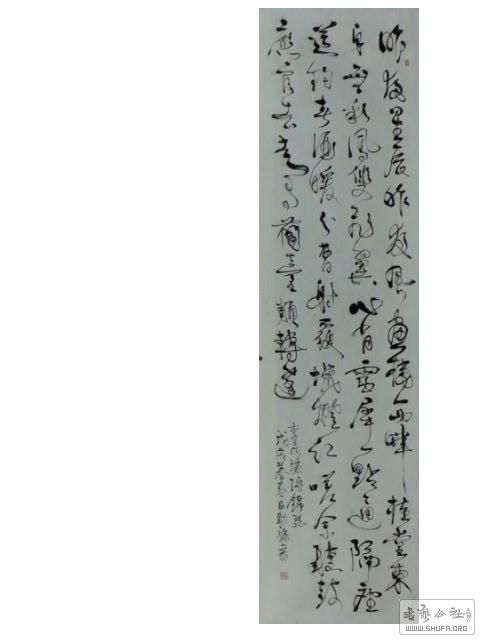 昨夜星辰昨夜風畫樓西畔桂堂東
身無彩鳳雙飛翼心有靈犀一點通隔座
送鉤春酒暖分曹射覆蠟燈紅嗟余聽鼓
應官去走馬蘭臺類轉蓬
李商隱詩
戊戌暮春
书艺公社
WWW.SHUFA.ORG